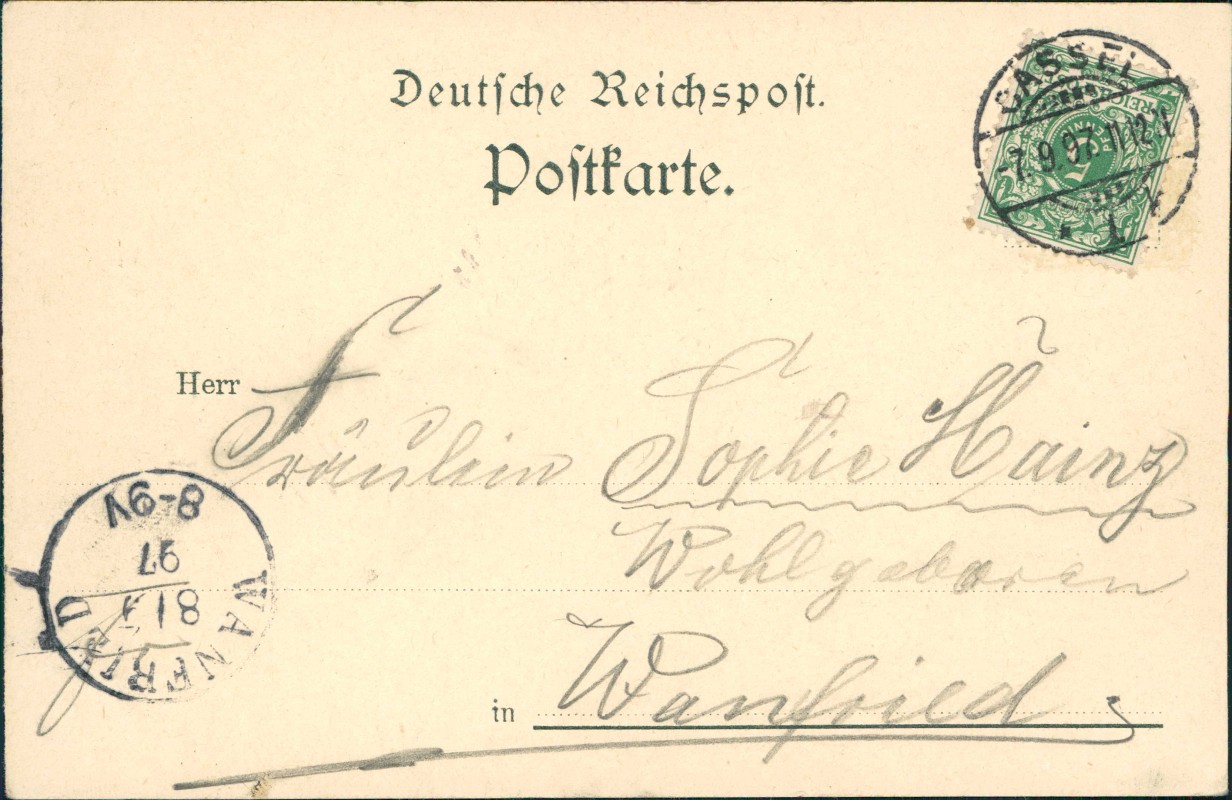 Deutsche Reichspost.
Postkarte.
CASSEL
-7.9.97.11-12V.
* 1
REICHSPOST
5
PFENNIG
Herr
Fräulein Sophie Hainz
Wohlgeboren
in Wanfried
WANFRIED
8 9
97
8-9V